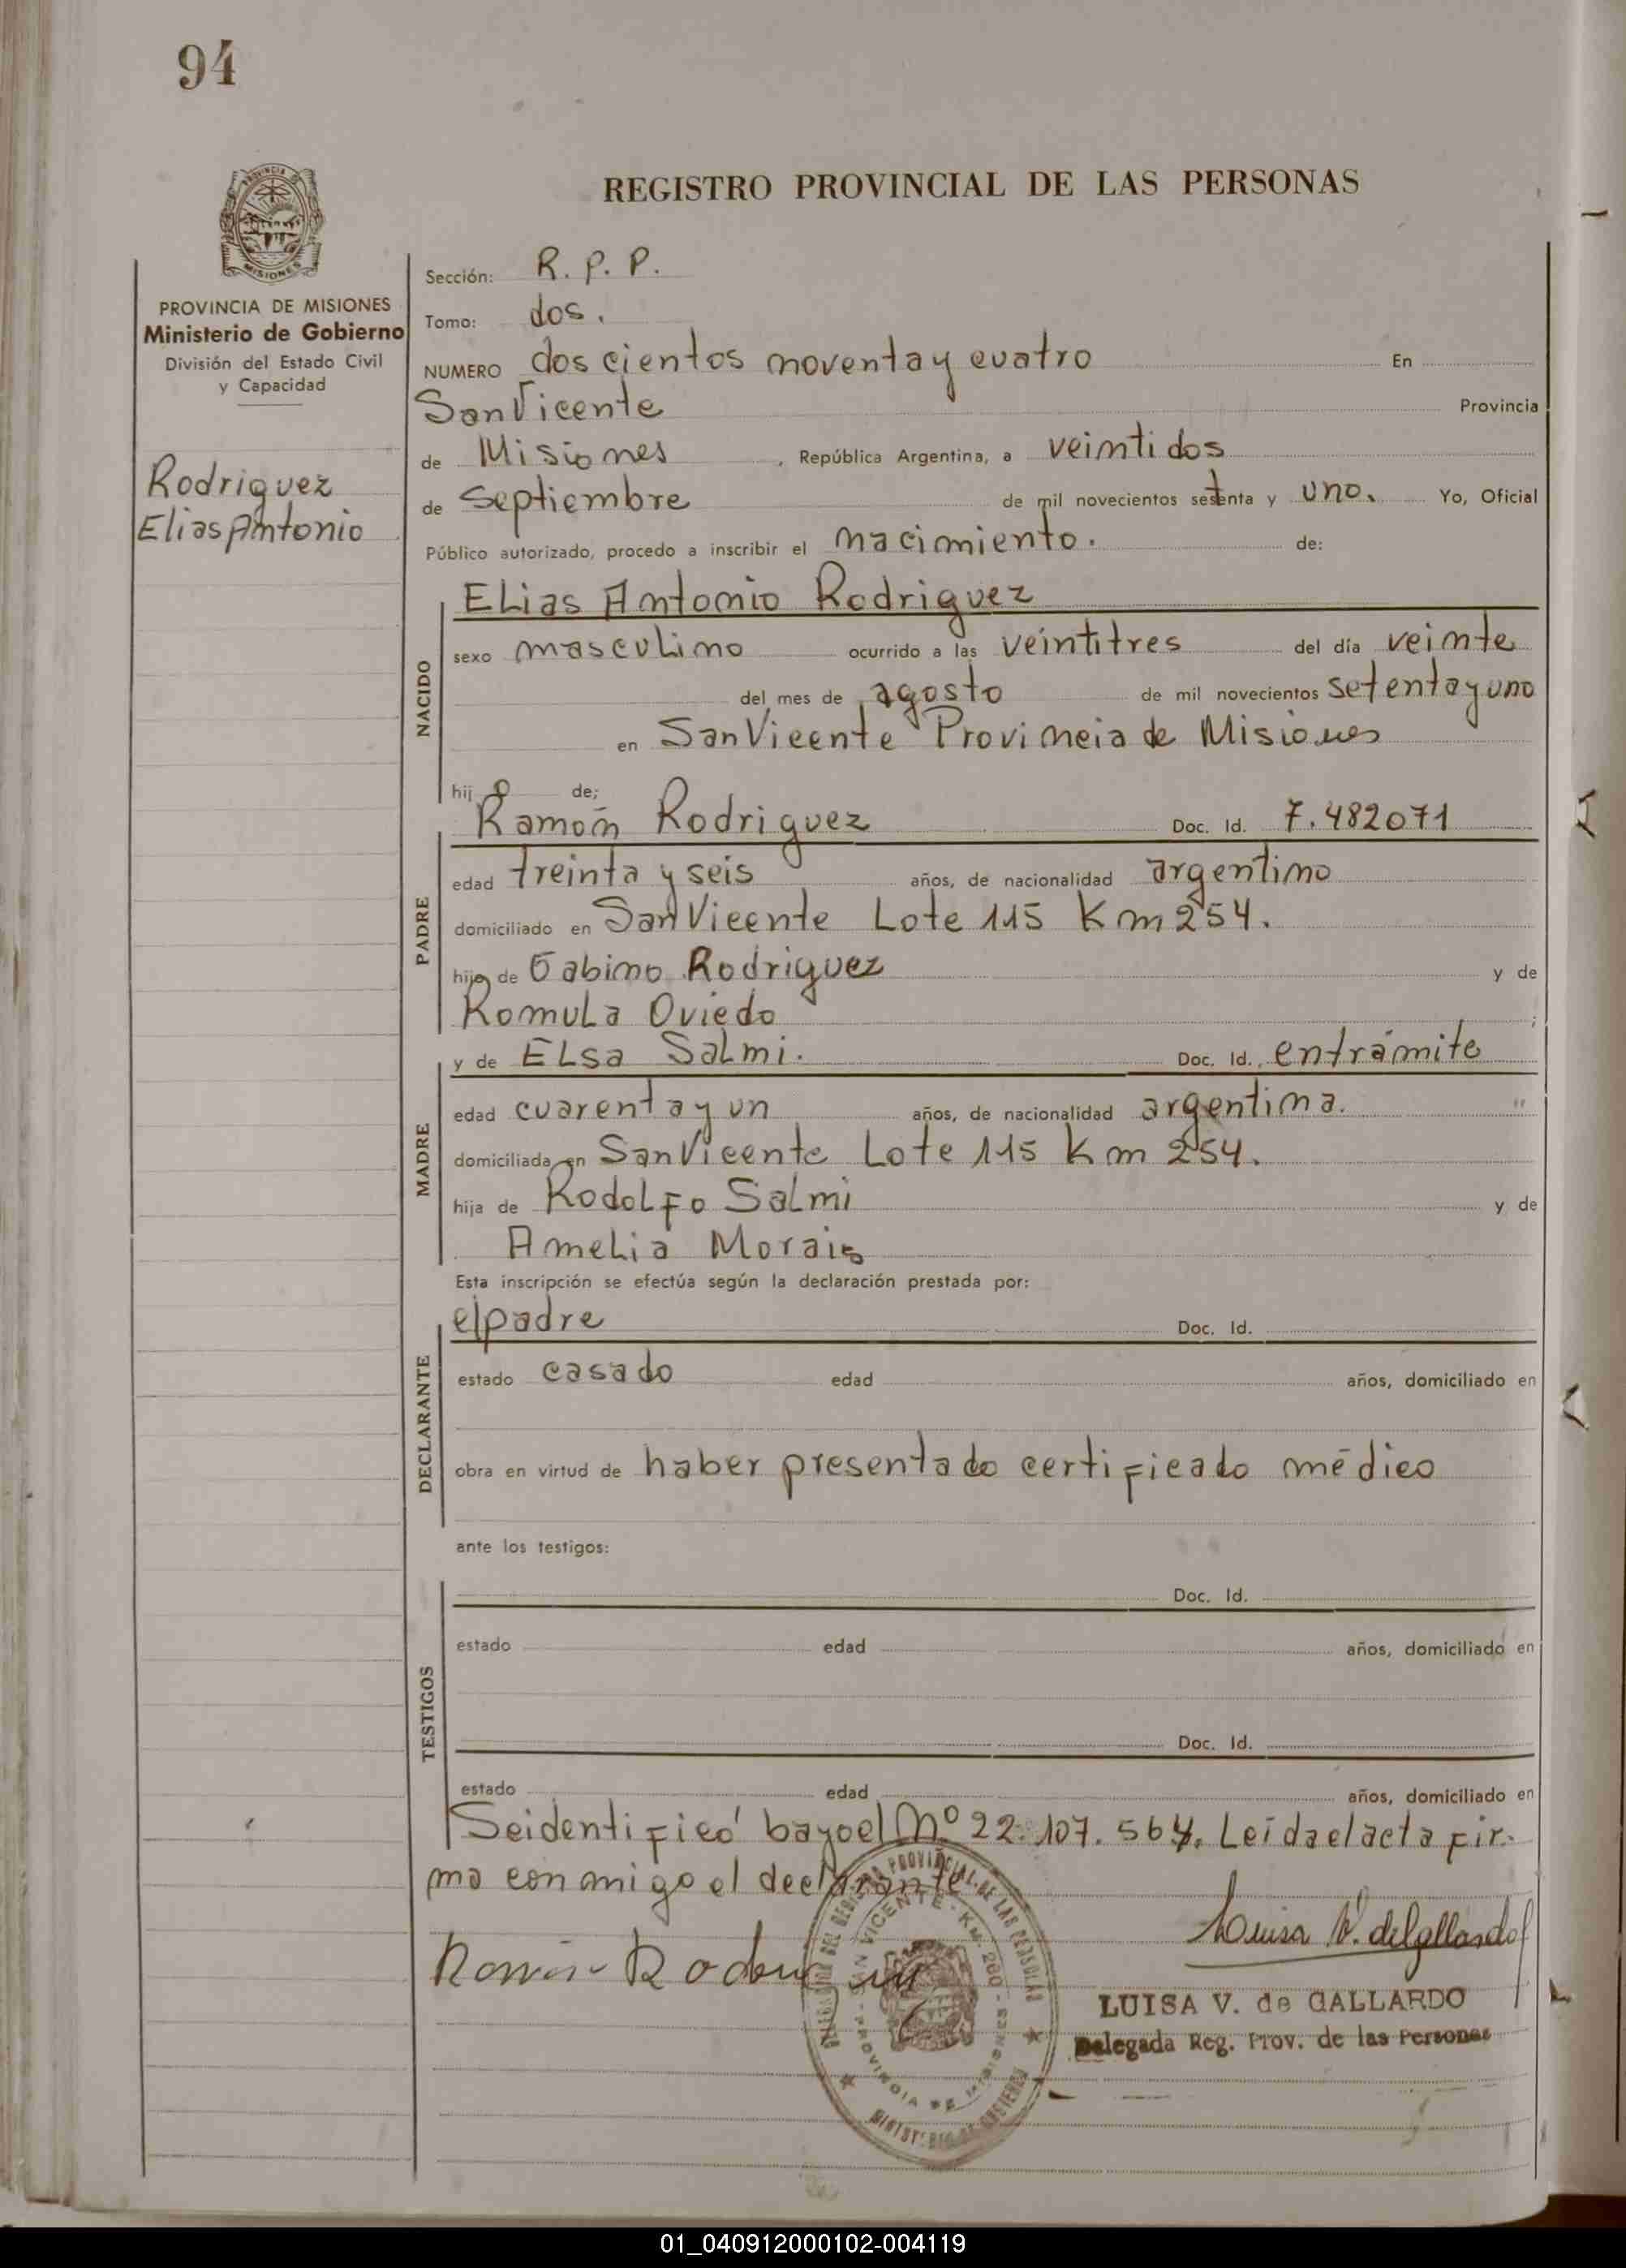 94
REGISTRO PROVINCIAL DE LAS PERSONAS
MISIONES
PROVINCIA DE MISIONES
Ministerio de Gobierno
División del Estado Civil
y Capacidad
Rodriguez
Elias Antonio
Sección: R. P. P.
Tomo: dos.
NUMERO dos cientos noventa y cuatro En
San Vicente Provincia
de Misiones, República Argentina, a veintidos
de Septiembre de mil novecientos setenta y uno. Yo, Oficial
Público autorizado, procedo a inscribir el nacimiento. de:
NACIDO
Elias Antonio Rodriguez
sexo masculino ocurrido a las veintitres del día veinte
del mes de agosto de mil novecientos setenta y uno
en San Vicente Provincia de Misiones
hijo de;
PADRE
Ramón Rodriguez Doc. Id. 7.482071
edad treinta y seis años, de nacionalidad argentino
domiciliado en San Vicente Lote 115 Km 254.
hijo de Gabino Rodriguez y de
Romula Oviedo ;
MADRE
y de Elsa Salmi. Doc. Id. en trámite
edad cuarenta y un años, de nacionalidad argentina.
domiciliada en San Vicente Lote 115 Km 254.
hija de Rodolfo Salmi y de
Amelia Morais
Esta inscripción se efectúa según la declaración prestada por:
DECLARANTE
el padre Doc. Id.
estado casado edad años, domiciliado en
obra en virtud de haber presentado certificado médico
ante los testigos:
TESTIGOS
Doc. Id.
estado edad años, domiciliado en
Doc. Id.
estado edad años, domiciliado en
Se identificó bayo el Nº 22.107.564. Leída el acta fir-
ma con migo el declarante
Ramón Rodriguez
Luisa V. de Gallardo
LUISA V. de GALLARDO
Delegada Reg. Prov. de las Personas
DELEGACION DEL REGISTRO PROVINCIAL DE LAS PERSONAS
SAN VICENTE - Km. 260 - MISIONES
PROVINCIA DE MISIONES
MINISTERIO DE GOBIERNO
01_040912000102-004119